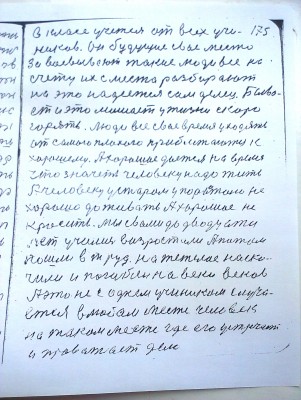 В класе учется от всех уче- 175
ников. Он будущие свае место
Завоевывают такие люде все на
счету их с места разбирают
на это надеется сам делец. Быва-
ет и это мешает у жизни скоро
гореть. Люди все свае время уходять
от самого плохого приближаться к
хорошему. А хорошае дается на время
Что значеть человеку надо жить
А человеку устарому поработало не
хорошо доживать А хорошае не
красить. Мы с вами до двадцати
лет учение возростали А потом
пошли в труд. на тежолые наско-
чили и погибли на веки веков
А это не с одним учеником случа-
ется в любом месте человек
на таком месте где его встречают
и провожает дело